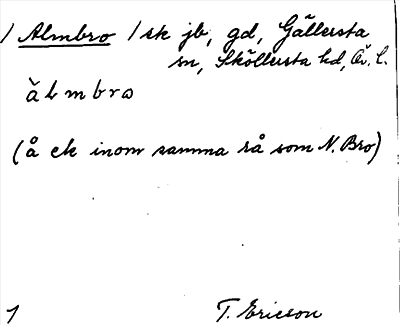 / Almbro / sk jb, gd, Gällersta
sn, Sköllersta hd, Ör. l.
àlmbro
(å ek inom samma rå som N. Bro)
1 T. Ericson